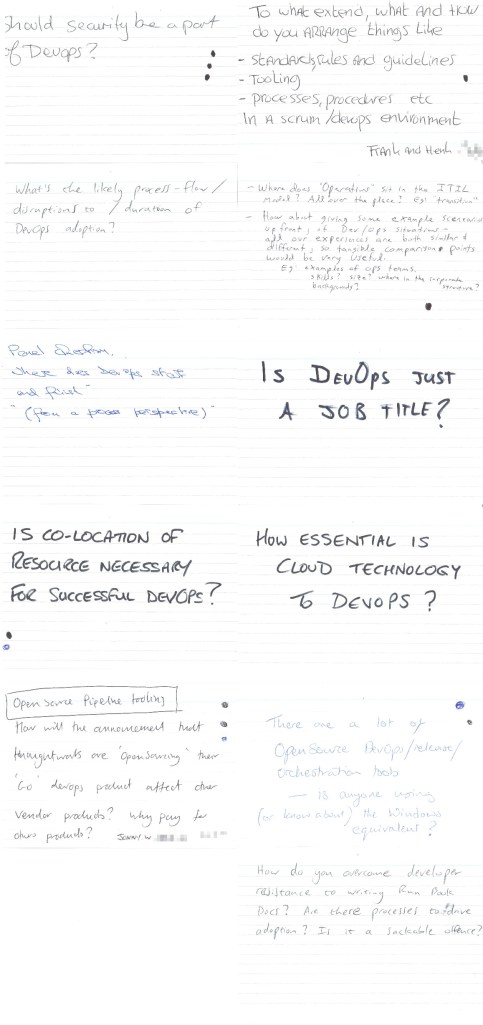 Should security be a part
of Devops?
To what extend, what and how
do you ARRANGE things like
- Standards, rules and guidelines
- Tooling
- processes, procedures etc
In a scrum/devops environment
Frank and Henk
What's the likely process-flow/
disruptions to / duration of
DevOps adoption?
- Where does "Operations" sit in the ITIL
model? All over the place? Eg "transition"
- How about giving some example scenarios
up front, of Dev/ops situations -
all our experiences are both similar &
different, so tangible comparison points
would be very useful.
Eg: examples of ops teams.
skills? size? where in the corporate
backgrounds? structure?
Panel Question.
"where does DevOps start
and finish"
"(from a process perspective)"
Is DevOps just
a job title?
Is co-location of
resource necessary
for successful DevOps?
How essential is
cloud technology
to DevOps?
Open Source Pipeline tooling
How will the announcement that
thoughtworks are 'OpenSourcing' their
'Go' devops product affect other
vendor products? Why pay for
others products?
There are a lot of
OpenSource DevOps/release/
orchestration tools
— is anyone using
(or know about) the Windows
equivalent?
How do you overcome developer
resistance to writing Run Book
Docs? Are there processes to drive
adoption? Is it a sackable offence?